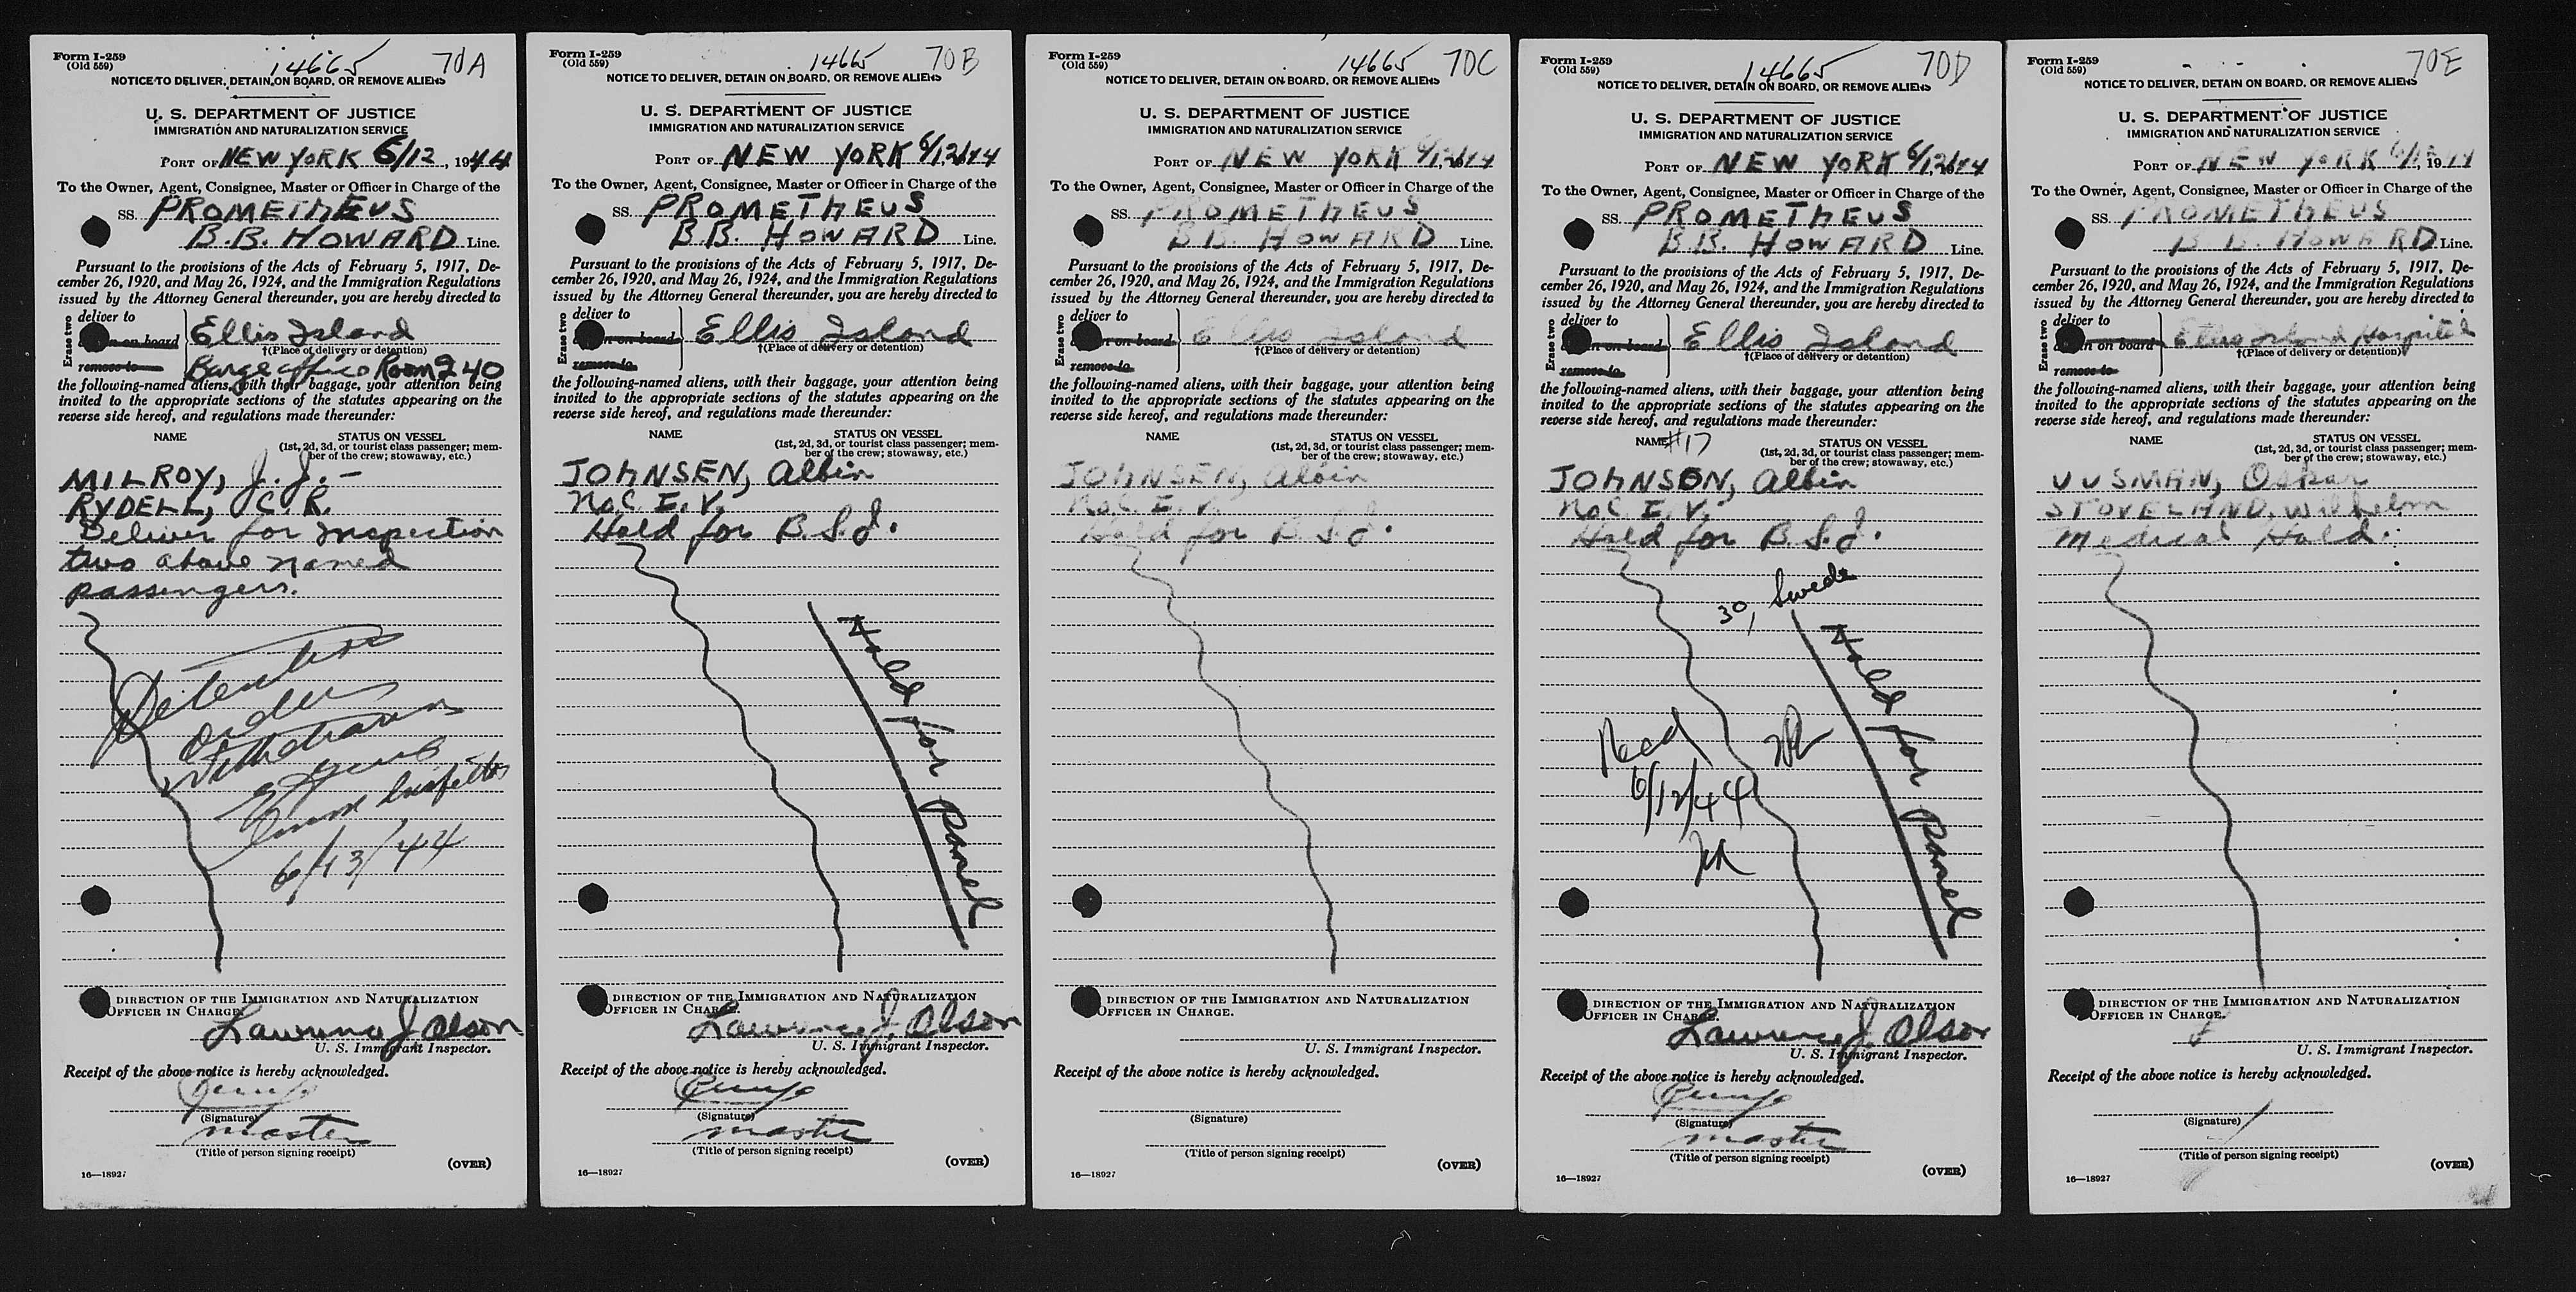 Form I-259
(Old 559)
14665
70A
NOTICE TO DELIVER, DETAIN ON BOARD, OR REMOVE ALIENS
U. S. DEPARTMENT OF JUSTICE
IMMIGRATION AND NATURALIZATION SERVICE
PORT OF NEW YORK 6/12, 1944
To the Owner, Agent, Consignee, Master or Officer in Charge of the
SS. PROMETHEUS
B.B. HOWARD Line.
Pursuant to the provisions of the Acts of February 5, 1917, De-
cember 26, 1920, and May 26, 1924, and the Immigration Regulations
issued by the Attorney General thereunder, you are hereby directed to
Erase two
deliver to
on board
remove to
Ellis Island
†(Place of delivery or detention)
Barge Office Room 240
the following-named aliens, with their baggage, your attention being
invited to the appropriate sections of the statutes appearing on the
reverse side hereof, and regulations made thereunder:
NAME
STATUS ON VESSEL
(1st, 2d, 3d, or tourist class passenger; mem-
ber of the crew; stowaway, etc.)
MILROY, J. J. -
RYDELL, C. R.
Deliver for inspection
two above named
passengers.
Detention
order
withdrawn
Imm Inspector
6/13/44
DIRECTION OF THE IMMIGRATION AND NATURALIZATION
OFFICER IN CHARGE.
Lawrence J. Olson
U. S. Immigrant Inspector.
Receipt of the above notice is hereby acknowledged.
(Signature)
master
(Title of person signing receipt)
16—18927
(OVER)
Form I-259
(Old 559)
14665
70B
NOTICE TO DELIVER, DETAIN ON BOARD, OR REMOVE ALIENS
U. S. DEPARTMENT OF JUSTICE
IMMIGRATION AND NATURALIZATION SERVICE
PORT OF NEW YORK 6/12, 1944
To the Owner, Agent, Consignee, Master or Officer in Charge of the
SS. PROMETHEUS
B.B. HOWARD Line.
Pursuant to the provisions of the Acts of February 5, 1917, De-
cember 26, 1920, and May 26, 1924, and the Immigration Regulations
issued by the Attorney General thereunder, you are hereby directed to
Erase two
deliver to
on board
remove to
Ellis Island
†(Place of delivery or detention)
the following-named aliens, with their baggage, your attention being
invited to the appropriate sections of the statutes appearing on the
reverse side hereof, and regulations made thereunder:
NAME
STATUS ON VESSEL
(1st, 2d, 3d, or tourist class passenger; mem-
ber of the crew; stowaway, etc.)
JOHNSEN, Albin
No. C. I. V.
Hold for B.S.I.
Hold for Panel
DIRECTION OF THE IMMIGRATION AND NATURALIZATION
OFFICER IN CHARGE.
Lawrence J. Olson
U. S. Immigrant Inspector.
Receipt of the above notice is hereby acknowledged.
(Signature)
master
(Title of person signing receipt)
16—18927
(OVER)
Form I-259
(Old 559)
14665
70C
NOTICE TO DELIVER, DETAIN ON BOARD, OR REMOVE ALIENS
U. S. DEPARTMENT OF JUSTICE
IMMIGRATION AND NATURALIZATION SERVICE
PORT OF NEW YORK 6/12, 1944
To the Owner, Agent, Consignee, Master or Officer in Charge of the
SS. PROMETHEUS
B.B. HOWARD Line.
Pursuant to the provisions of the Acts of February 5, 1917, De-
cember 26, 1920, and May 26, 1924, and the Immigration Regulations
issued by the Attorney General thereunder, you are hereby directed to
Erase two
deliver to
on board
remove to
Ellis Island
†(Place of delivery or detention)
the following-named aliens, with their baggage, your attention being
invited to the appropriate sections of the statutes appearing on the
reverse side hereof, and regulations made thereunder:
NAME
STATUS ON VESSEL
(1st, 2d, 3d, or tourist class passenger; mem-
ber of the crew; stowaway, etc.)
JOHNSEN, Albin
No. C. I. V.
Hold for B.S.I.
DIRECTION OF THE IMMIGRATION AND NATURALIZATION
OFFICER IN CHARGE.
U. S. Immigrant Inspector.
Receipt of the above notice is hereby acknowledged.
(Signature)
(Title of person signing receipt)
16—18927
(OVER)
Form I-259
(Old 559)
14665
70D
NOTICE TO DELIVER, DETAIN ON BOARD, OR REMOVE ALIENS
U. S. DEPARTMENT OF JUSTICE
IMMIGRATION AND NATURALIZATION SERVICE
PORT OF NEW YORK 6/12, 1944
To the Owner, Agent, Consignee, Master or Officer in Charge of the
SS. PROMETHEUS
B.B. HOWARD Line.
Pursuant to the provisions of the Acts of February 5, 1917, De-
cember 26, 1920, and May 26, 1924, and the Immigration Regulations
issued by the Attorney General thereunder, you are hereby directed to
Erase two
deliver to
on board
remove to
Ellis Island
†(Place of delivery or detention)
the following-named aliens, with their baggage, your attention being
invited to the appropriate sections of the statutes appearing on the
reverse side hereof, and regulations made thereunder:
NAME #17
STATUS ON VESSEL
(1st, 2d, 3d, or tourist class passenger; mem-
ber of the crew; stowaway, etc.)
JOHNSON, Albin
No. C. I. V.
Hold for B.S.I.
30, Swede
Hold for Panel
Recd
6/12/44
DIRECTION OF THE IMMIGRATION AND NATURALIZATION
OFFICER IN CHARGE.
Lawrence J. Olson
U. S. Immigrant Inspector.
Receipt of the above notice is hereby acknowledged.
(Signature)
master
(Title of person signing receipt)
16—18927
(OVER)
Form I-259
(Old 559)
70E
NOTICE TO DELIVER, DETAIN ON BOARD, OR REMOVE ALIENS
U. S. DEPARTMENT OF JUSTICE
IMMIGRATION AND NATURALIZATION SERVICE
PORT OF NEW YORK 6/12, 1944
To the Owner, Agent, Consignee, Master or Officer in Charge of the
SS. PROMETHEUS
B.B. HOWARD Line.
Pursuant to the provisions of the Acts of February 5, 1917, De-
cember 26, 1920, and May 26, 1924, and the Immigration Regulations
issued by the Attorney General thereunder, you are hereby directed to
Erase two
deliver to
on board
remove to
Ellis Island Hospital
†(Place of delivery or detention)
the following-named aliens, with their baggage, your attention being
invited to the appropriate sections of the statutes appearing on the
reverse side hereof, and regulations made thereunder:
NAME
STATUS ON VESSEL
(1st, 2d, 3d, or tourist class passenger; mem-
ber of the crew; stowaway, etc.)
UUSMAN, Oskar
STOVELAND, Wilhelm
Medical Hold.
DIRECTION OF THE IMMIGRATION AND NATURALIZATION
OFFICER IN CHARGE.
U. S. Immigrant Inspector.
Receipt of the above notice is hereby acknowledged.
(Signature)
(Title of person signing receipt)
16—18927
(OVER)